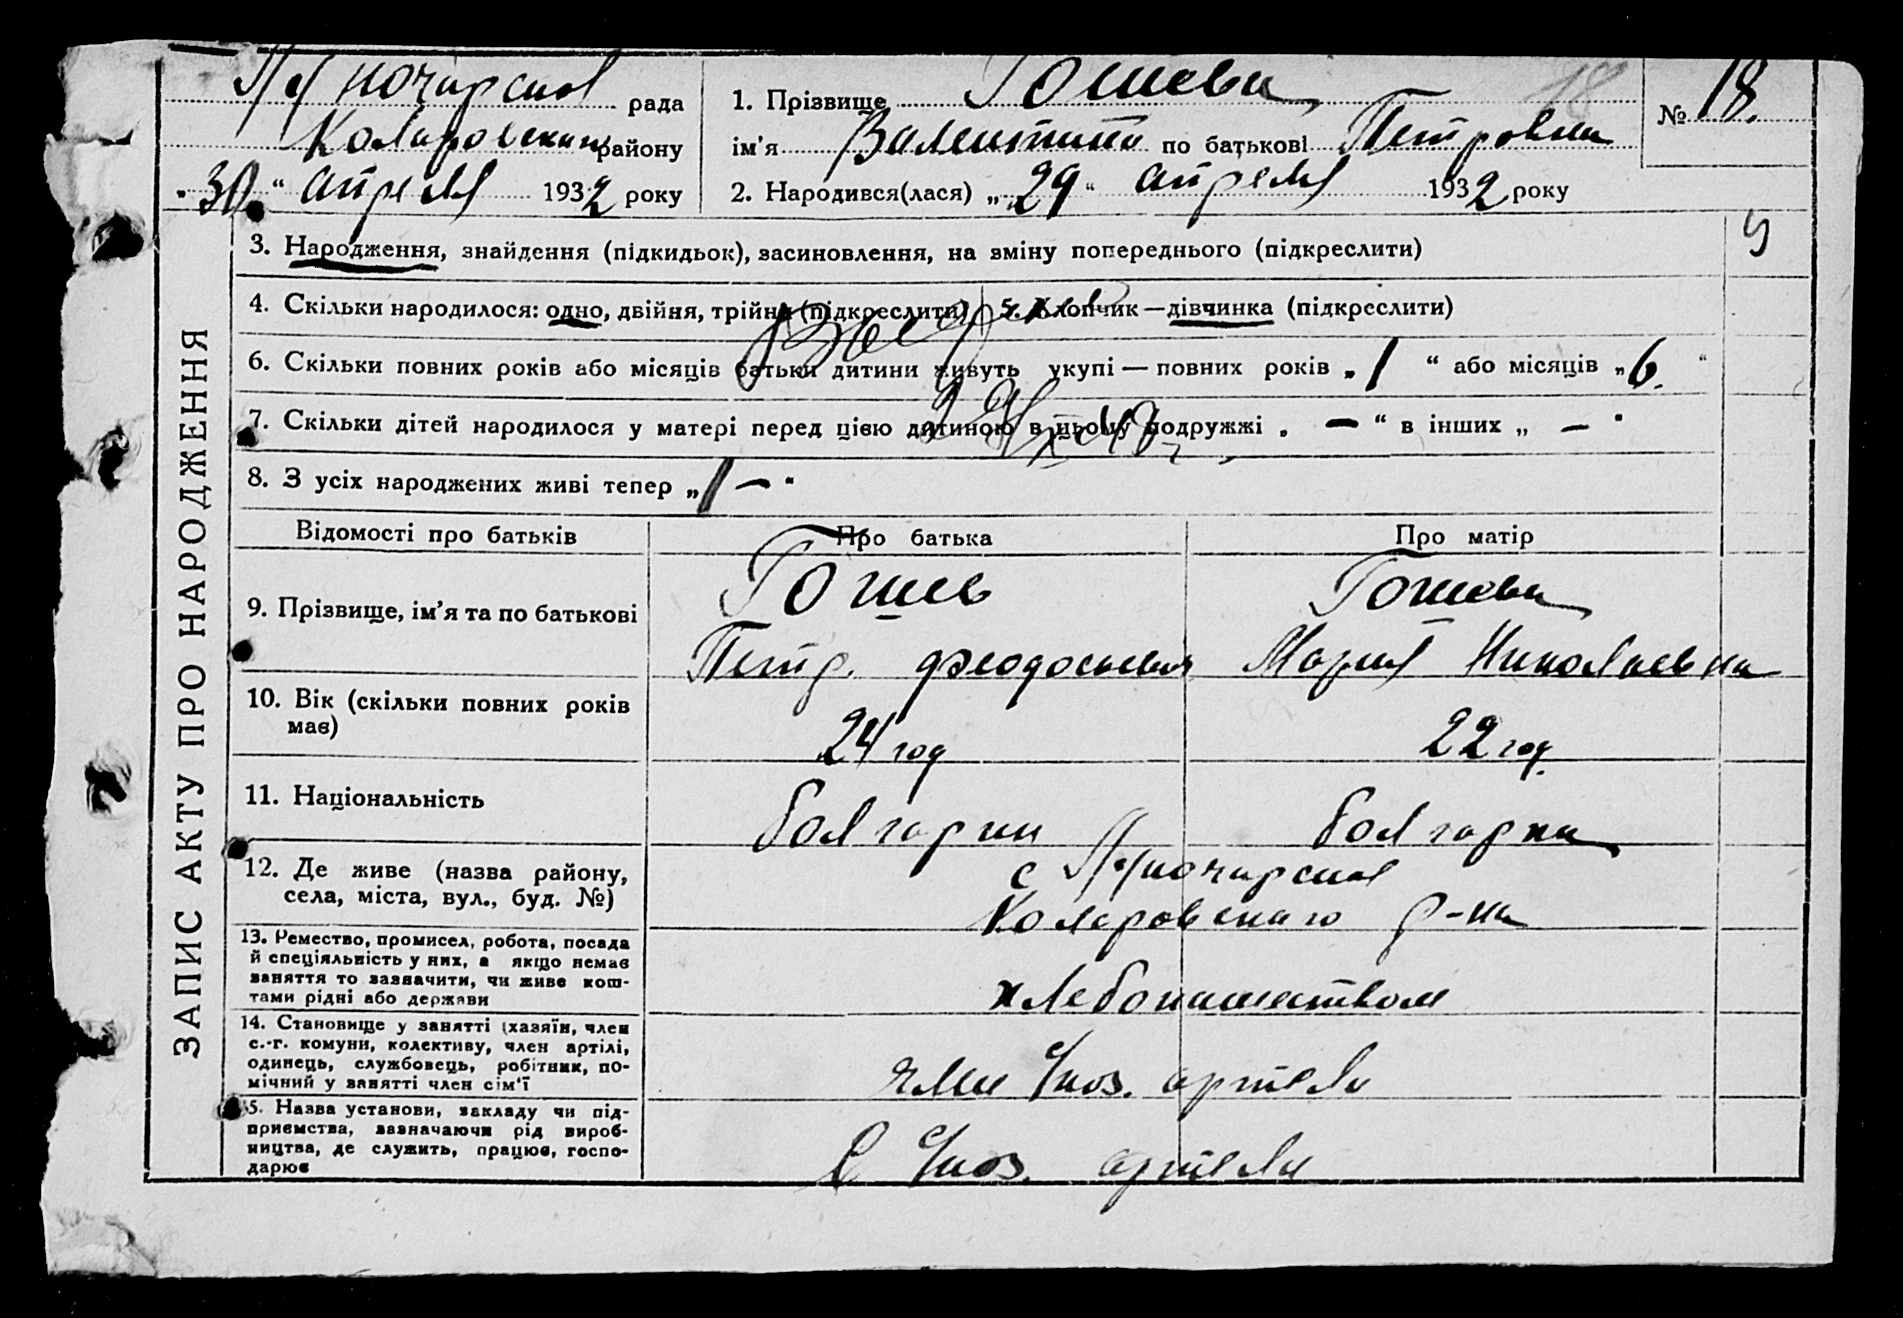 Луночарская рада
Коларовского району
„30“ апреля 1932 року
1. Прізвище Гошева
ім'я Валентина по батькові Петровна
2. Народився(лася) „29“ апреля 1932 року
№ 18.
18
ЗАПИС АКТУ ПРО НАРОДЖЕННЯ
3. Народження, знайдення (підкидьок), засиновлення, на зміну попереднього (підкреслити)
4. Скільки народилося: одно, двійня, трійня (підкреслити) 5. Хлопчик—дівчинка (підкреслити)
6. Скільки повних років або місяців батьки дитини живуть укупі — повних років „1“ або місяців „6.“
7. Скільки дітей народилося у матері перед цією дитиною в цьому подружжі „—“ в інших „—“
8. З усіх народжених живі тепер „1—“
Відомості про батьків Про батька Про матір
9. Прізвище, ім'я та по батькові
Гошев Гошева
Петр. Феодосьевич Мария Николаевна
10. Вік (скільки повних років
має)
24 год 22 год.
11. Національність
болгарин болгарка
12. Де живе (назва району,
села, міста, вул., буд. №)
с Луночарская
Коларовскаго р-на
13. Ремество, промисел, робота, посада
й спеціяльність у них, а якщо немає
заняття то зазначити, чи живе кош-
тами рідні або держави
хлебопашеством
14. Становище у занятті (хазяїн, член
с.-г. комуни, колективу, член артілі,
одинець, службовець, робітник, по-
мічний у занятті член сім'ї
член с/хоз. артели
15. Назва установи, закладу чи під-
приємства, зазначаючи рід вироб-
ництва, де служить, працює, госпо-
дарює
в с/хоз. артели